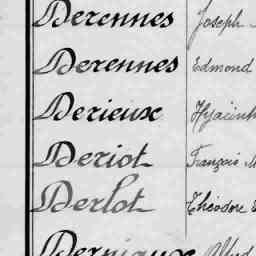 Derennes Joseph
Derennes Edmond
Derieux
Deriot François
Derlot Théodore